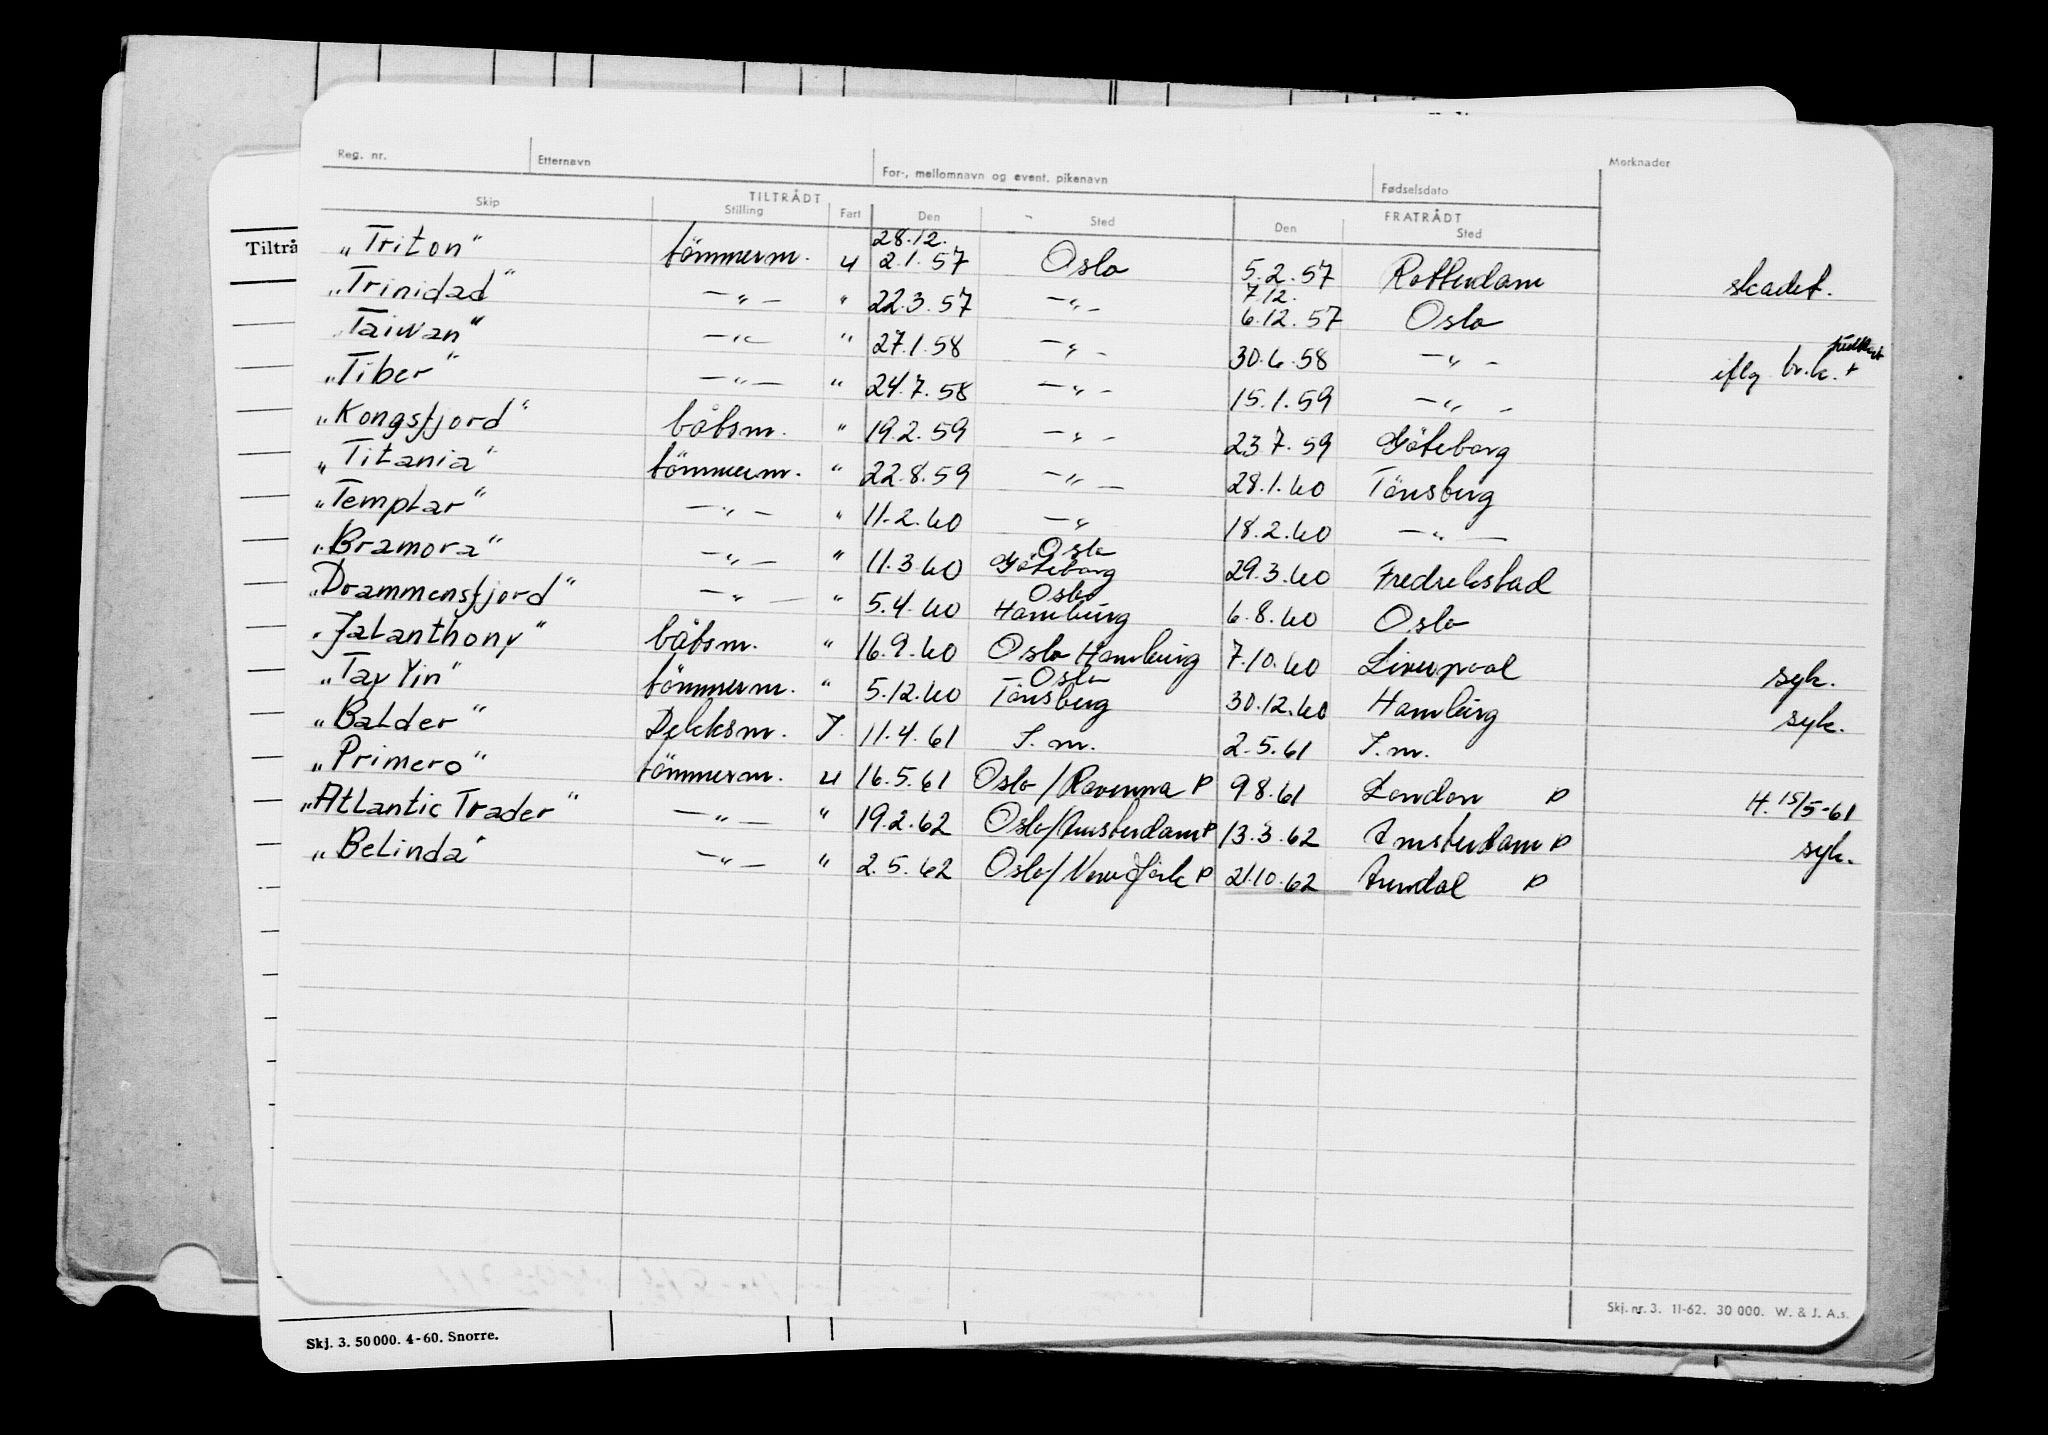 Reg. nr. Etternavn For-, mellomnavn og event. pikenavn Fødselsdato Merknader
TILTRÅDT FRATRÅDT
Skip Stilling Fart Den Sted Den Sted
Tiltrå
28.12.
„Triton" tömmerm. u 2.1.57 Oslo 5.2.57 Rotterdam skadet.
7.12.
„Trinidad" —„— " 22.3.57 —„— 6.12.57 Oslo
„Taiwan" —„— " 27.1.58 —„— 30.6.58 —„— iflg br.k. +
„Tiber" —„— " 24.7.58 —„— 15.1.59 —„—
„Kongsfjord" båtsm. " 19.2.59 —„— 23.7.59 Göteborg
„Titania" tömmerm. " 22.8.59 —„— 28.1.60 Tönsberg
„Templar" —„— " 11.2.60 —„ 18.2.60 —„—
Oslo
„Bramora" —„— " 11.3.60 Göteborg 29.3.60 Fredrikstad
Oslo
„Drammensfjord" —„— " 5.4.60 Hamburg 6.8.60 Oslo
„Jalanthony" båtsm. " 16.9.60 Oslo Hamburg 7.10.60 Liverpool syk.
Oslo
„Tay Yin" tömmerm. " 5.12.60 Tönsberg 30.12.60 Hamburg syk.
„Balder" Dekksm. J. 11.4.61 J.m. 2.5.61 J.m.
„Primero" tömmerm. u 16.5.61 Oslo/Ravenna P 9.8.61 London P H. 15/5-61
„Atlantic Trader" —„— " 19.2.62 Oslo/Amsterdam P 13.3.62 Amsterdam P syk.
„Belinda" —„— " 2.5.62 Oslo/New York P 21.10.62 Arendal P
Skj. nr. 3. 11-62. 30 000. W. & J. A.s.
Skj. 3. 50 000. 4-60. Snorre.